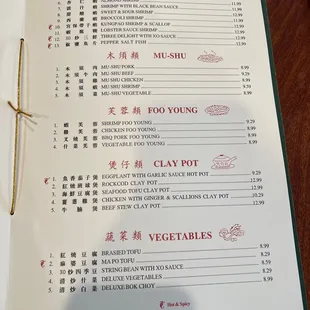 SHRIMP WITH BLACK BEAN SAUCE
SWEET & SOUR SHRIMP
BROCCOLI SHRIMP
KUNGPAO SHRIMP & SCALLOP
THREE DELIGHT WITH XO SAUCE
PEPPER SALT FISH 12.99
木須類 MU-SHU
1. 木須肉 MU-SHU PORK
2. 木須牛肉 MU-SHU BEEF
3. 木須雞 MU-SHU CHICKEN
4. MU-SHU SHRIMP
5. 木須菜 MU-SHU VEGETABLE
芙蓉類 FOO YOUNG
1. 蝦芙蓉 SHRIMP FOO YOUNG 9.29
2. 雞芙蓉 CHICKEN FOO YOUNG 8.99
3. 叉燒芙蓉 BBQ PORK FOO YOUNG 8.99
4. 什菜芙蓉 VEGETABLE FOO YOUNG 8.99
煲仔類 CLAY POT
1. 魚香茄子煲 EGGPLANT WITH GARLIC SAUCE HOT POT 9.99
2. 紅燒班球煲 ROCKCOD CLAY POT 12.99
3. 海鮮豆腐煲 SEAFOOD TOFU CLAY POT 12.99
4. 薑蔥雞煲 CHICKEN WITH GINGER & SCALLIONS CLAY POT 10.29
5. 牛腩煲 BEEF STEW CLAY POT 12.99
蔬菜類 VEGETABLES
1. 紅燒豆腐 BRASIED TOFU 8.99
2. 麻婆豆腐 MA PO TOFU 8.29
3. XO炒四季豆 STRING BEAN WITH XO SAUCE 9.29
4. 清炒什菜 DELUXE VEGETABLES 8.59
5. 清炒白菜 DELUXE BOK CHOY 8.29
Hot & Spicy